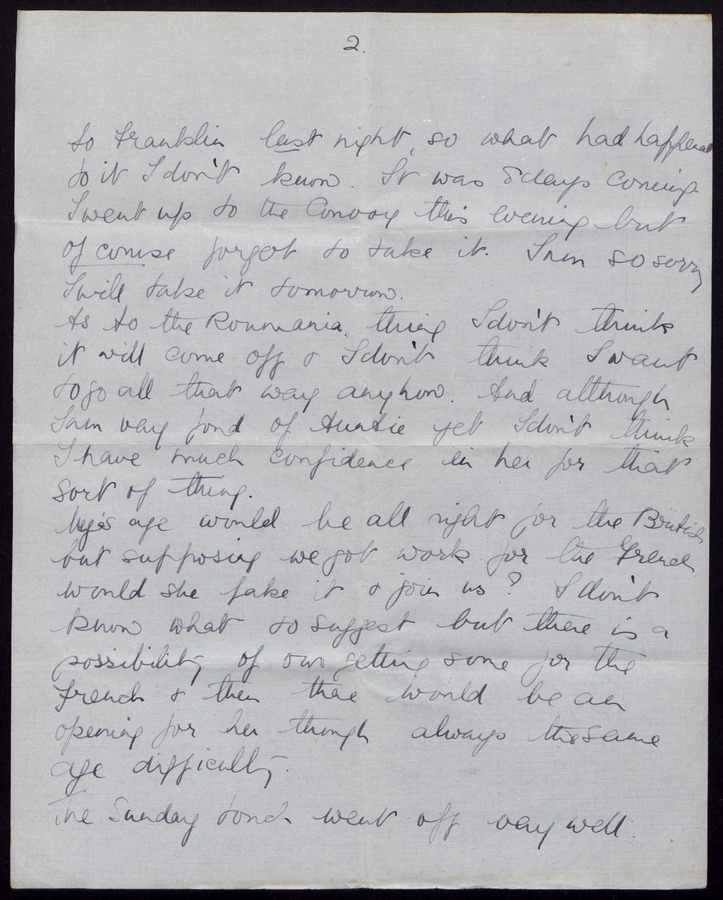 2.
to Franklin last night, so what had happened
to it I don't know. It was 8 days coming
I went up to the Convoy this evening but
of course forgot to take it. I am so sorry
I will take it tomorrow.
As to the Roumania thing I don't think
it will come off & I don't think I want
to go all that way anyhow. And although
I am very fond of Auntie yet I don't think
I have much confidence in her for that
sort of thing.
age would be all right for the British
but supposing we got work for the French
would she fake it & join us? I don't
know what to suggest but there is a
possibility of our getting some for the
French & then there would be an
opening for her though always the same
age difficulty.
The Sunday went off very well.